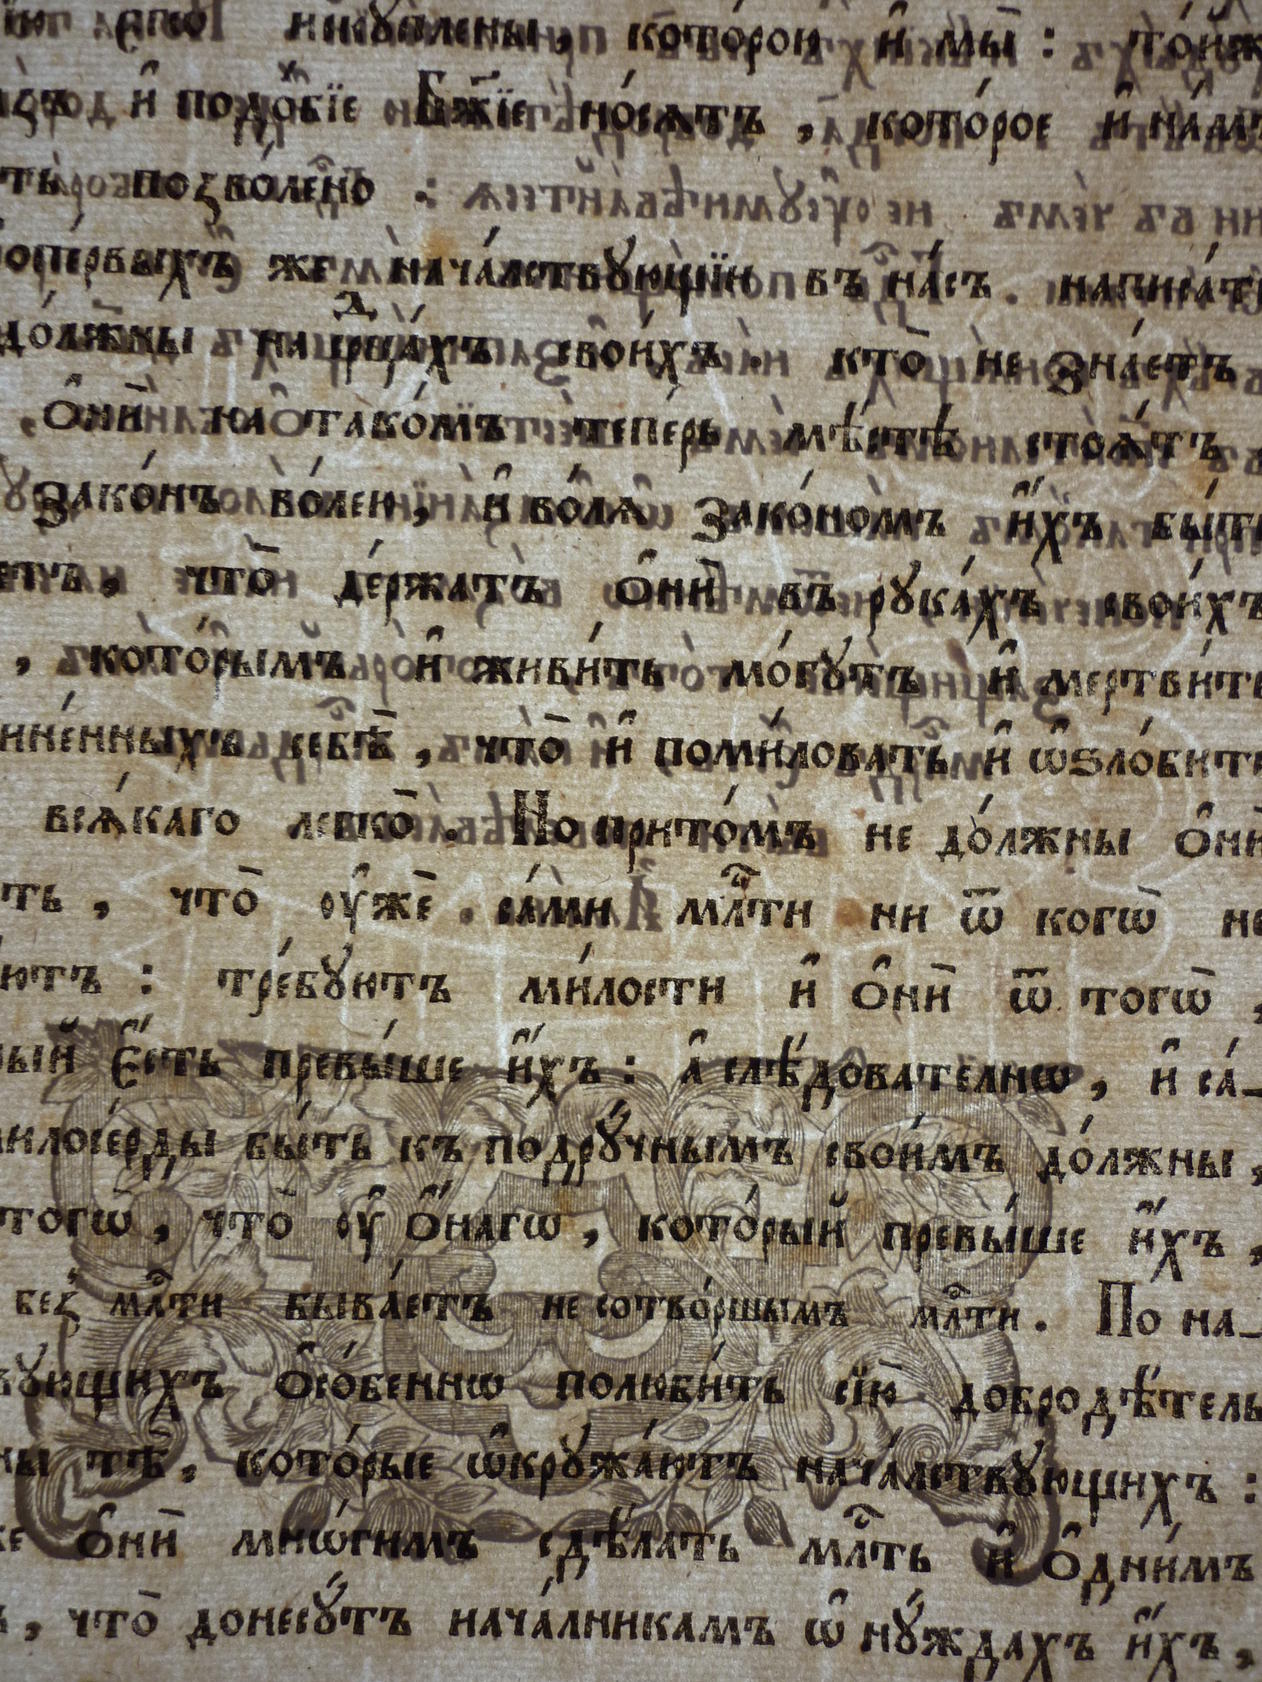 єгѡ̀ искꙋплены, кото́рою и҆ мы̀ : то́йже
и҆ подо́бїе Бж҃їе но́сѧтъ , кото́рое и҆ на́мъ
позво́лено :
попе́рвыхъ же нача́лствꙋющїи въ на́съ . написа́ть
до́лжны на срⷣца́хъ свои́хъ . кто̀ не зна́етъ
ѻ҆нѝ на тако́мъ тепе́рь мѣ́стѣ стоѧ́тъ ,
зако́нъ во́лею , и҆ во́лѧ зако́номъ и҆́хъ бы́ть
что̀ де́ржатъ ѻ҆нѝ въ рꙋка́хъ свои́хъ
, кото́рымъ и҆ живи́ть мо́гꙋтъ и҆ мертви́ть
себѣ̀ , что̀ и҆ поми́ловать и҆ ѡ҆ѕло́бить
всѧ́каго легко̀ . Но прито́мъ не до́лжны ѻ҆нѝ
, что̀ ᲂу҆жѐ са́ми млⷭ҇ти ни ѿ когѡ̀ не
: тре́бꙋютъ ми́лости и҆ ѻ҆нѝ ѿ тогѡ̀ ,
є҆́сть превы́ше и҆́хъ : а҆ слѣ́дователнѡ , и҆ са́-
милосе́рды бы́ть къ подрꙋ́чнымъ свои́мъ до́лжны ,
тогѡ̀ , что̀ ᲂу҆ ѻ҆́нагѡ , кото́рый превы́ше и҆́хъ ,
без̾ млⷭ҇ти быва́етъ не сотво́ршымъ млⷭ҇ти . По на-
ѻ҆со́беннѡ полюби́ть сїю̀ добродѣ́тель
тѣ̀ , кото́рые ѡ҆крꙋжа́ютъ нача́лствꙋющихъ :
ѻ҆нѝ мнѡ́гимъ сдѣ́лать млⷭ҇ть и҆ ѻ҆дни́мъ
, что̀ донесꙋ́тъ нача́лникамъ ѡ҆ нꙋ́ждахъ и҆́хъ ,